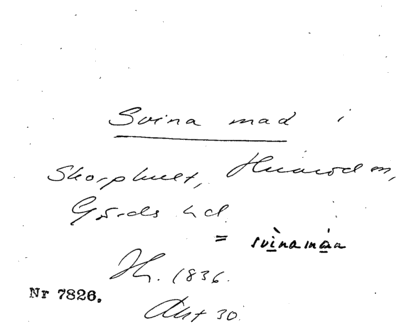 Svina mad i
Skorphult, Huaröd sn,
Gärds hd.
= svìnamáa
Jh. 1836.
Nr 7826.
Akt 30.